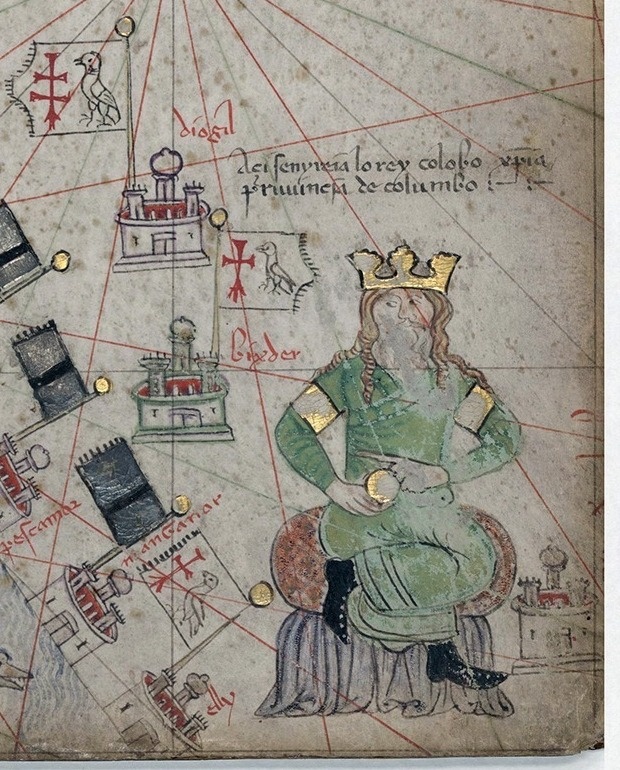 diogil
Aci senyreia lo rey colobo xpia
priuuncia de columbo
bijder
pescamor
manganor
elly